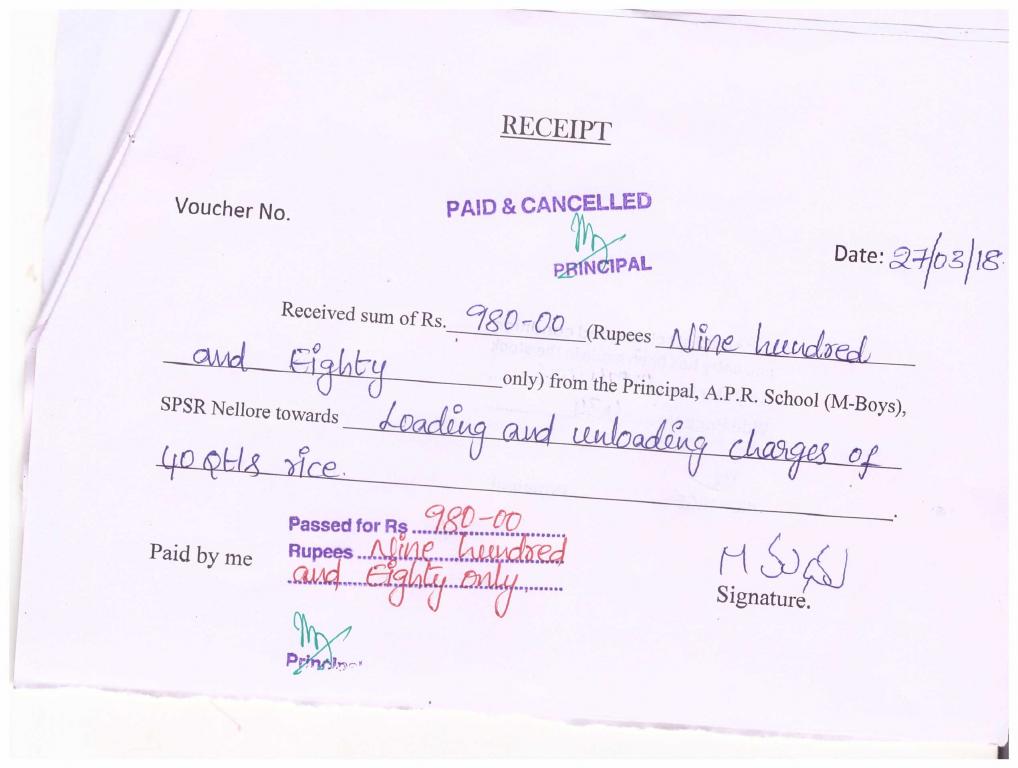 RECEIPT
Voucher No.
PAID & CANCELLED
PRINCIPAL
Date: 27/03/18
Received sum of Rs. 980-00 (Rupees Nine hundred
and Eighty only) from the Principal, A.P.R. School (M-Boys),
SPSR Nellore towards Loading and unloading charges of
40 Qtls rice.
Passed for Rs 980-00
Paid by me Rupees Nine hundred
and Eighty only
Signature.
Principal